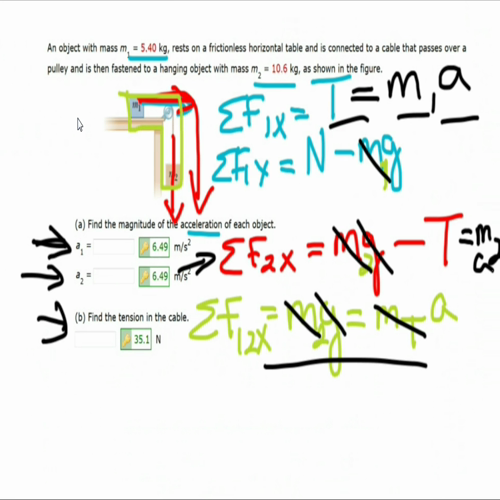 An object with mass m₁ = 5.40 kg, rests on a frictionless horizontal table and is connected to a cable that passes over a
pulley and is then fastened to a hanging object with mass m₂ = 10.6 kg, as shown in the figure.
m₁
ΣF₁ₓ = T = m₁a
ΣF₁ₓ = N - m₁g
m₂
(a) Find the magnitude of the acceleration of each object.
a₁ = 6.49 m/s²
ΣF₂ₓ = m₂g - T = m₂
a₂ = 6.49 m/s²
ΣF₁₂ₓ = m₂g = mₜa
(b) Find the tension in the cable.
35.1 N